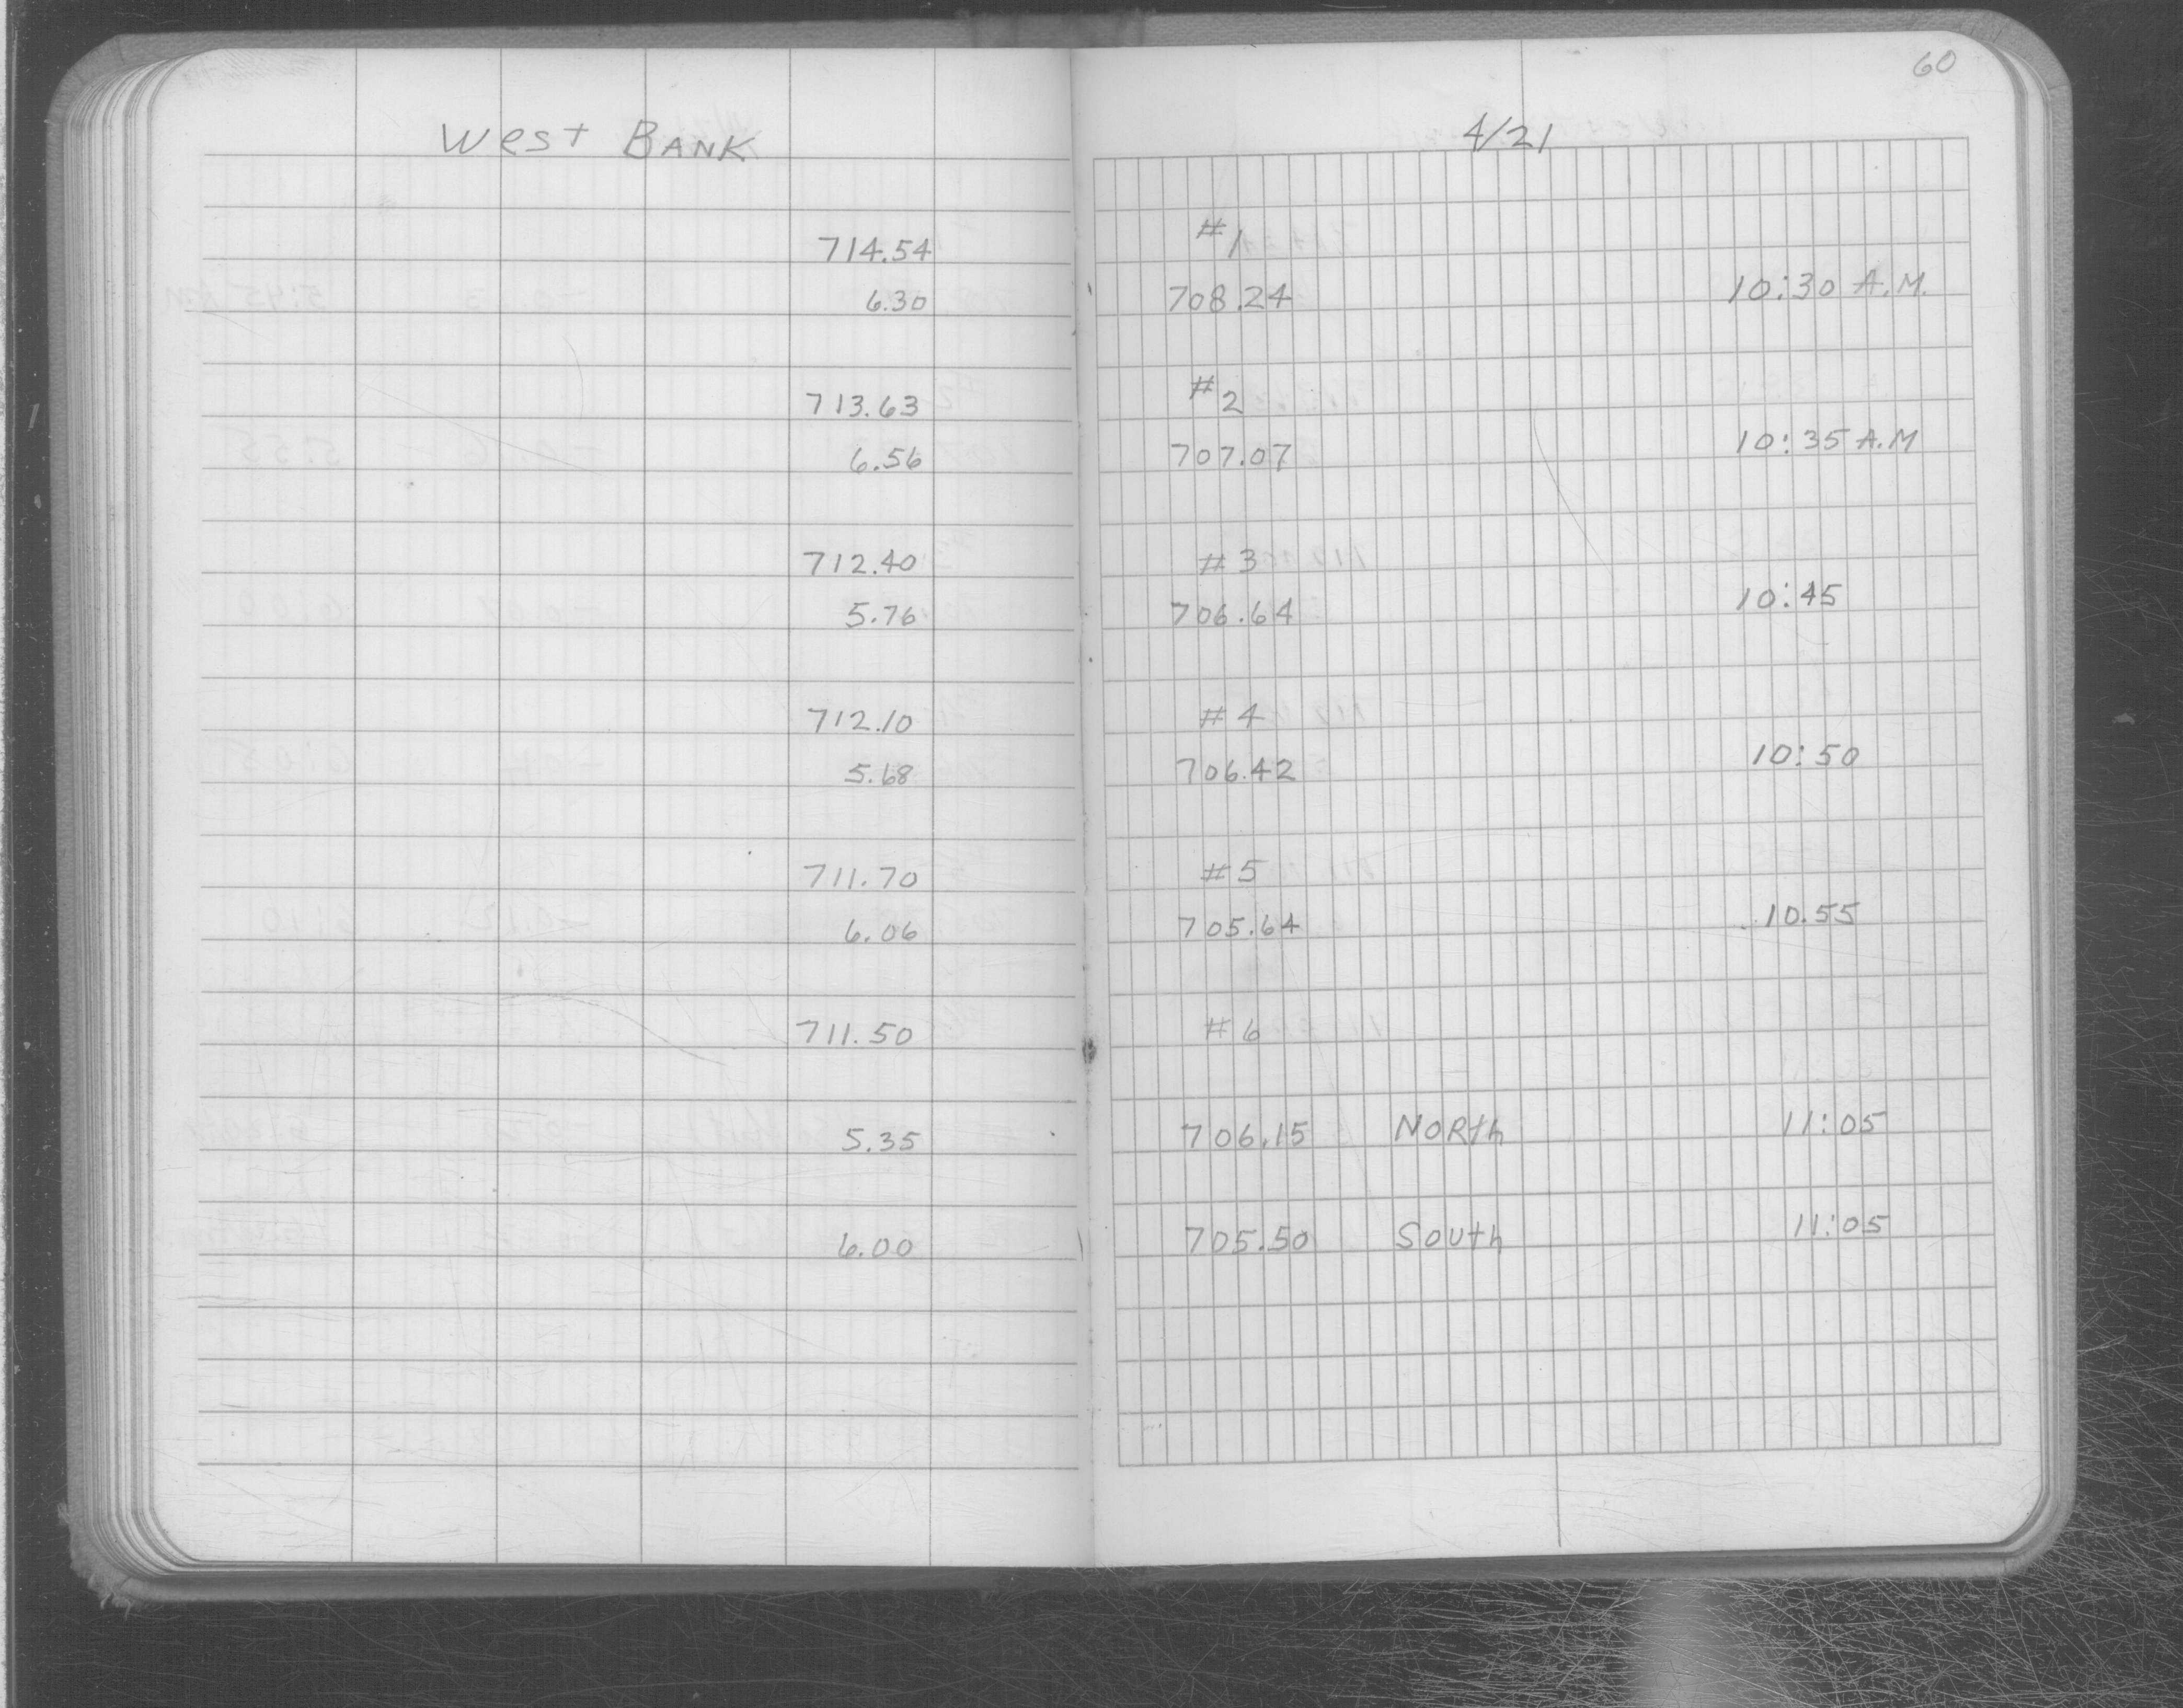 60
West BANK 4/21
714.54 #1
6.30 708.24 10:30 A.M.
713.63 #2
6.56 707.07 10:35 A.M
712.40 #3
5.76 706.64 10:45
712.10 #4
5.68 706.42 10:50
711.70 #5
6.06 705.64 10.55
711.50 #6
5.35 706.15 NORth 11:05
6.00 705.50 South 11:05